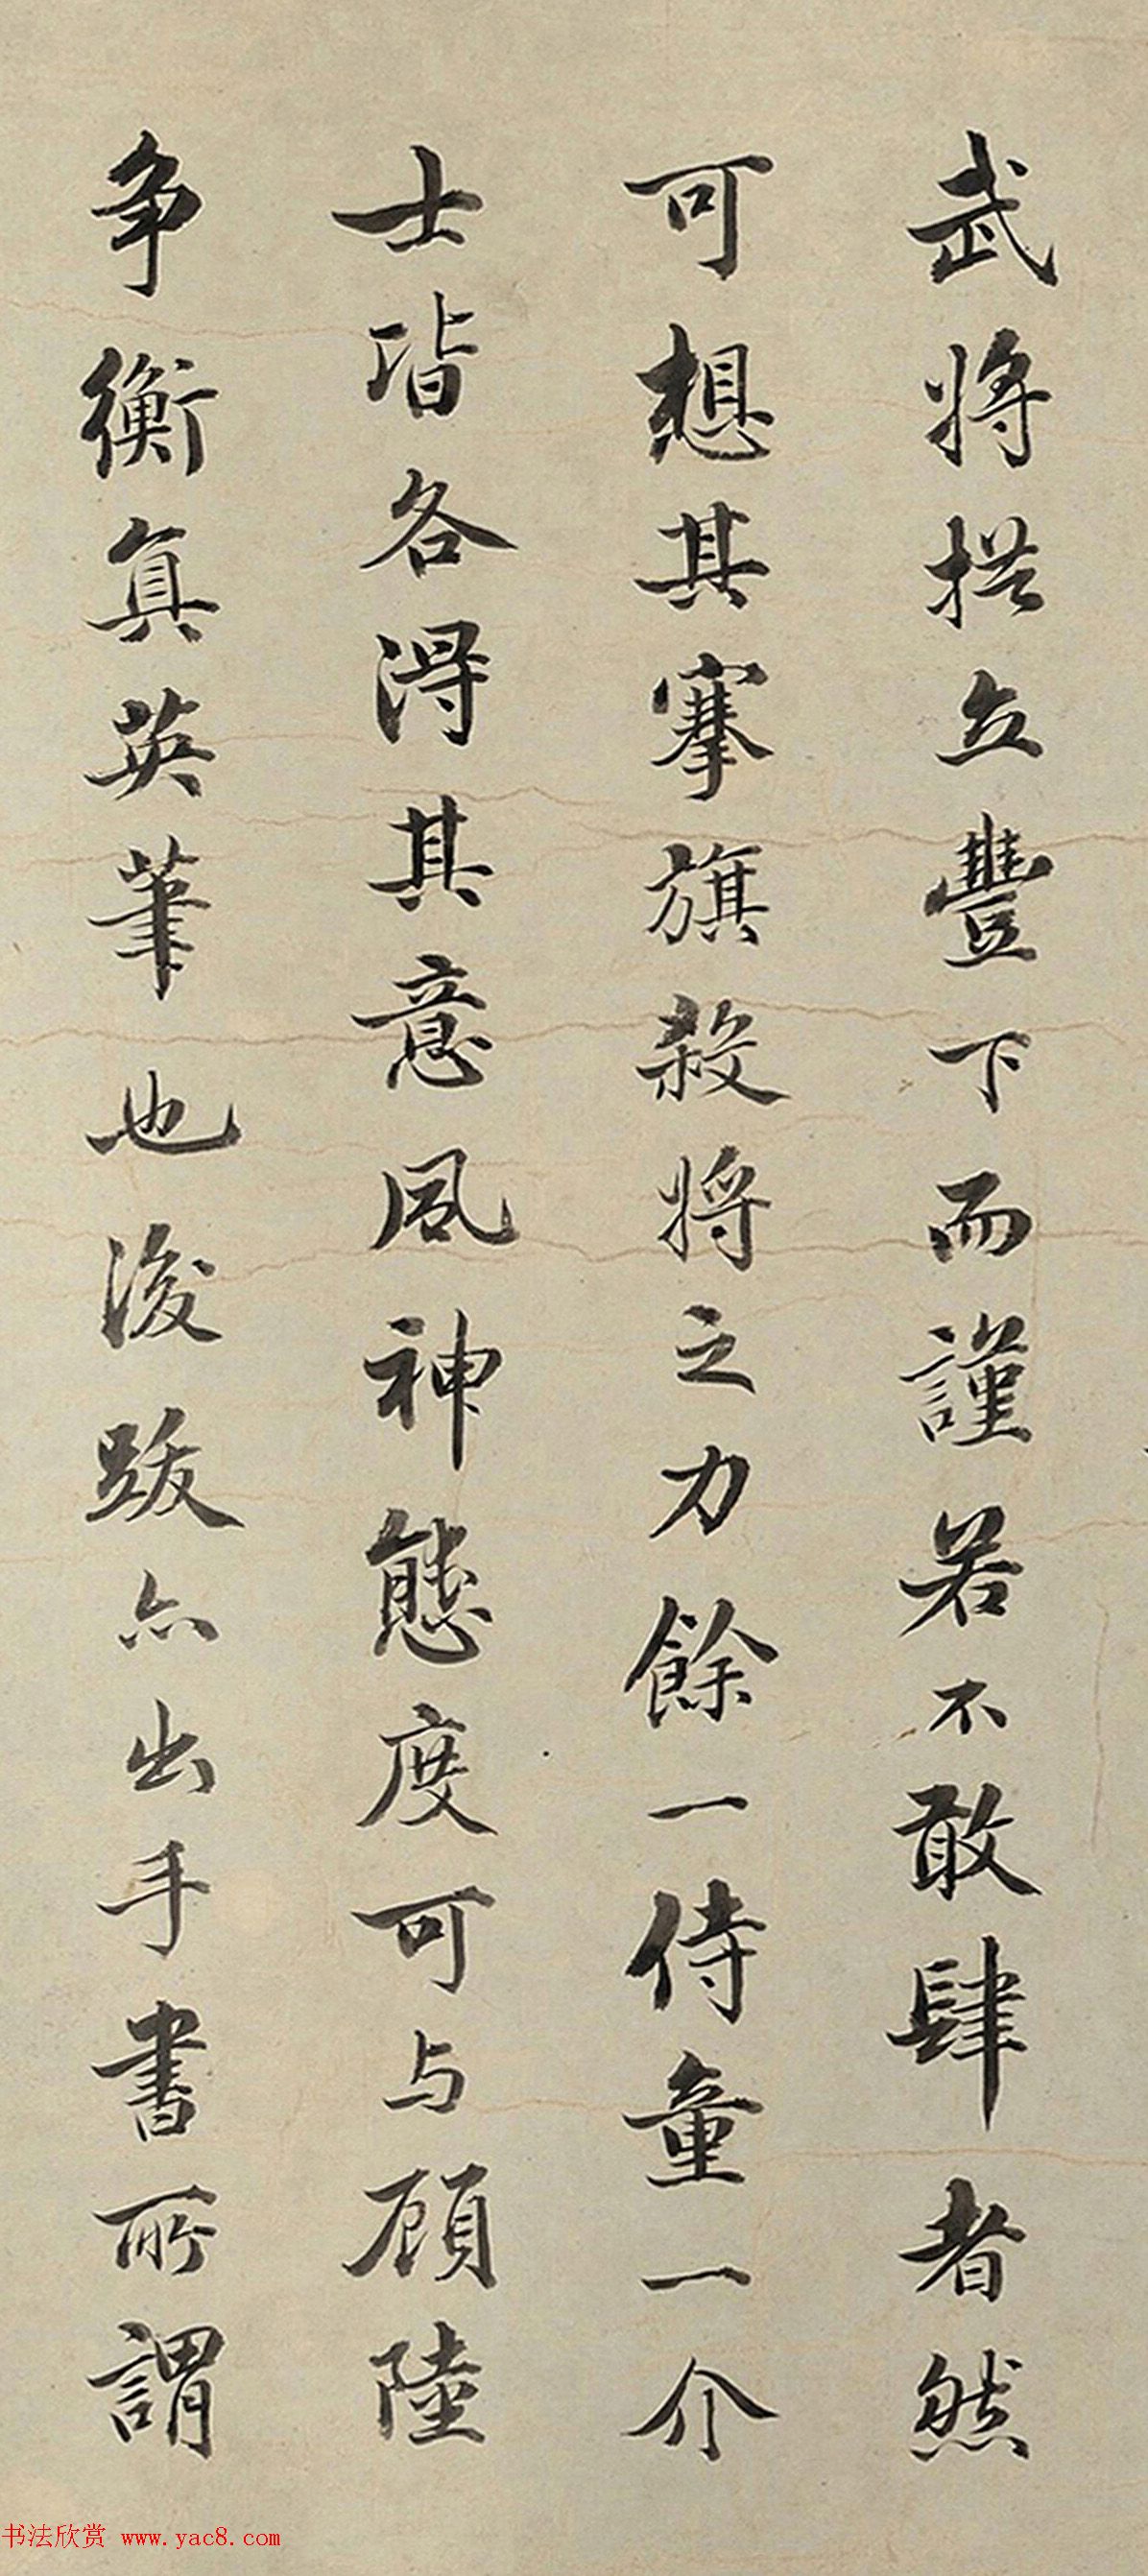 武將拱立豐下而謹若不敢肆者然
可想其搴旗殺將之力餘一侍童一介
士皆各得其意風神態度可与顧陸
争衡真英筆也後跋亦出手書所謂
书法欣赏 www.yac8.com